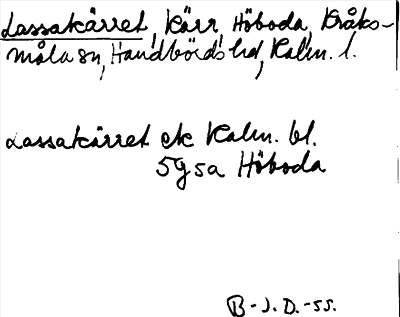 Lassakärret, Kärr, Höboda, Kråks-
måla sn, Handbörds hd, Kalm. l.
Lassakärret ek Kalm. bl.
5g5a Höboda
B-J.D.-55.